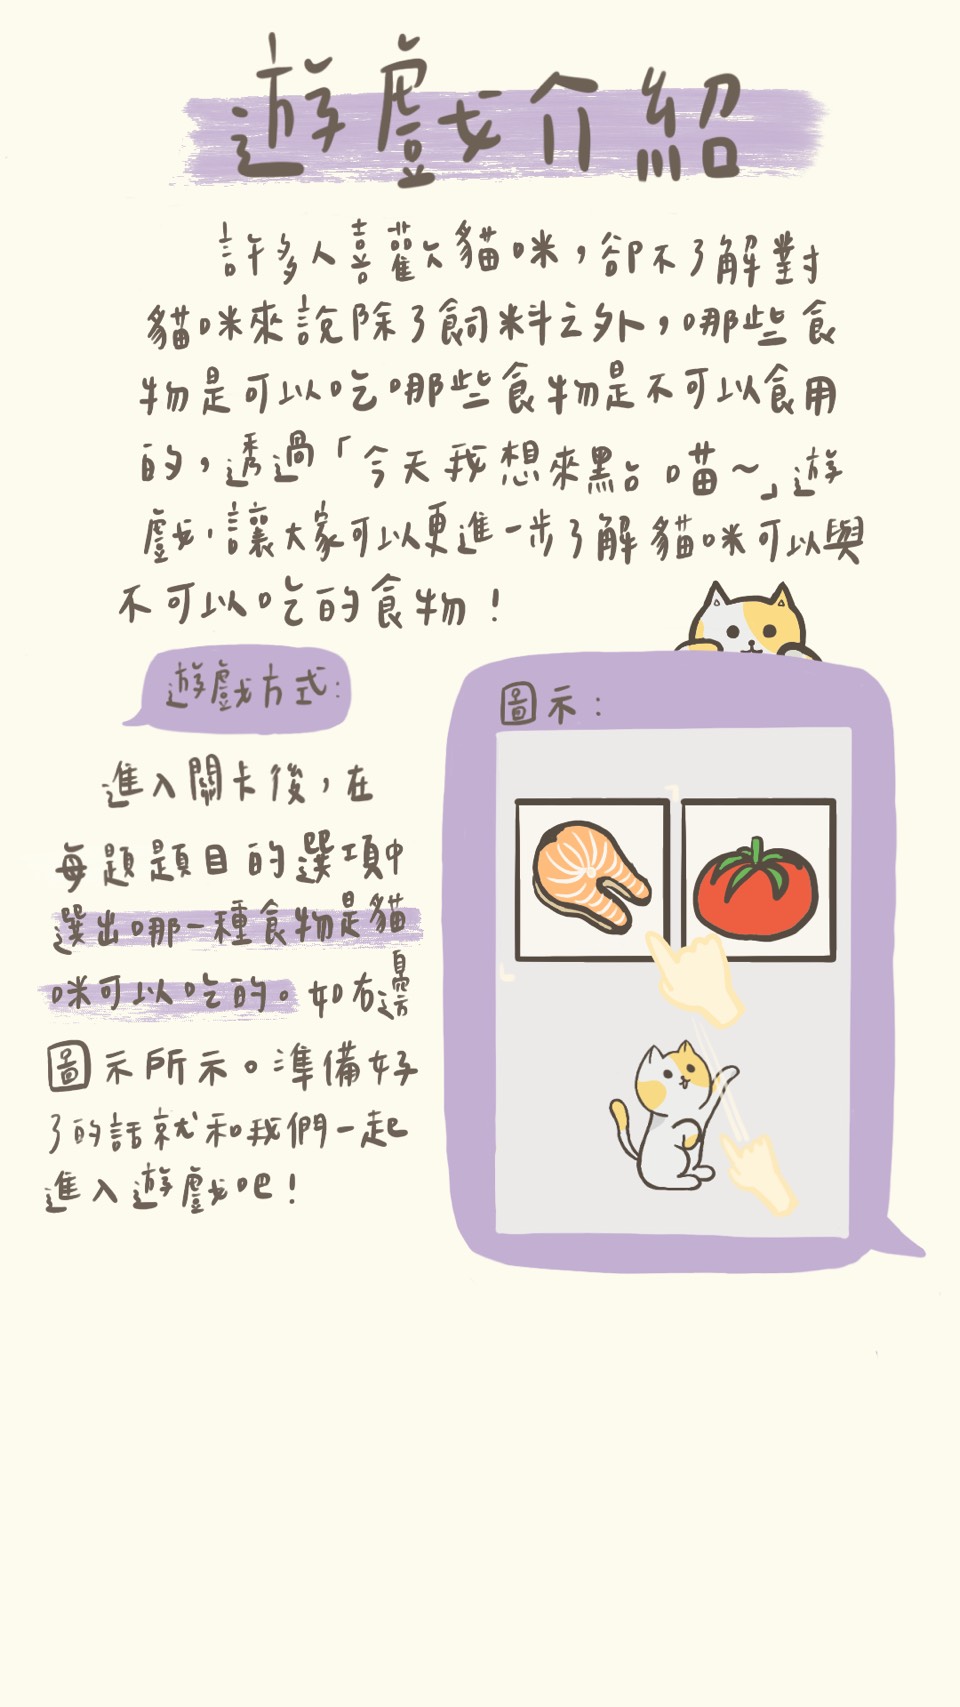 遊戲介紹
許多人喜歡貓咪，卻不了解對
貓咪來說除了飼料之外，哪些食
物是可以吃哪些食物是不可以食用
的，透過「今天我想來點喵～」遊
戲，讓大家可以更進一步了解貓咪可以與
不可以吃的食物！
遊戲方式：
進入關卡後，在
每題題目的選項中
選出哪一種食物是貓
咪可以吃的。如右邊
圖示所示。準備好
了的話就和我們一起
進入遊戲吧！
圖示：